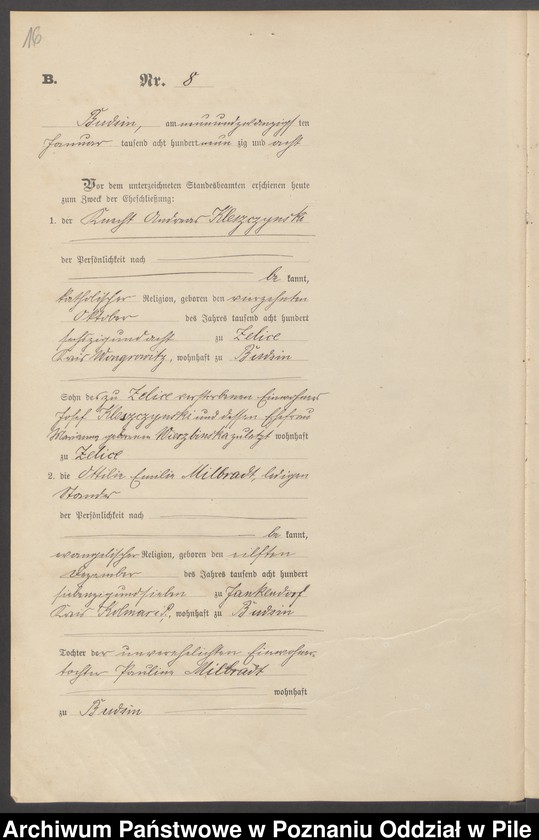 16
B. Nr. 8
Budsin, am neunundzwanzigsten
Januar tausend acht hundert neun zig und acht
Vor dem unterzeichneten Standesbeamten erschienen heute
zum Zweck der Eheschließung:
1. der Knecht Andreas Kleszczynski
der Persönlichkeit nach
be kannt,
katholischer Religion, geboren den vierzehnten
Oktober des Jahres tausend acht hundert
sechszigundacht zu Zelice
Kreis Wongrowitz, wohnhaft zu Budsin
Sohn des zu Zelice verstorbenen Einwohners
Josef Kleszczynski und dessen Ehefrau
Marianna geborenen Wierzbinska zuletzt wohnhaft
zu Zelice
2. die Ottilie Emilie Milbradt, ledigen
Standes
der Persönlichkeit nach
be kannt,
evangelischer Religion, geboren den eilften
Dezember des Jahres tausend acht hundert
siebenzigundsieben zu Jankendorf
Kreis Kolmar i/P., wohnhaft zu Budsin
Tochter der unverehelichten Einwohner-
tochter Pauline Milbradt
wohnhaft
zu Budsin
Archiwum Państwowe w Poznaniu Oddział w Pile